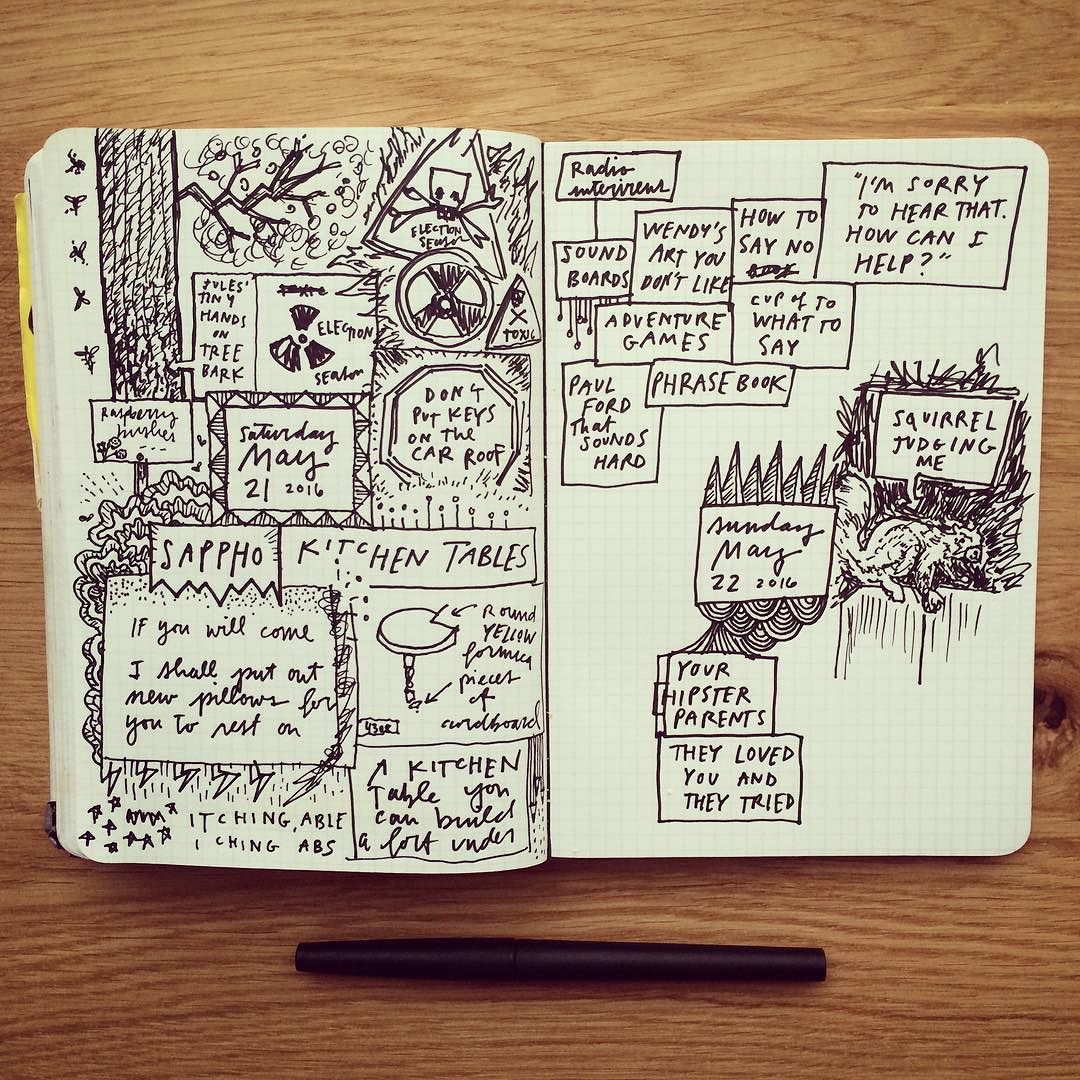 ELECTION
SEASON
JULES'
TINY
HANDS
ON
TREE
BARK
ELECTION
SEASON
TOXIC
Raspberry
bushes
Saturday
May
21 2016
DON'T
PUT KEYS
ON THE
CAR ROOF
SAPPHO
If you will come
I shall put out
new pillows for
you to rest on
KITCHEN TABLES
Round
YELLOW
formica
pieces
of
cardboard
KITCHEN
Table you
can build
a fort under
ITCHING, ABLE
I CHING ABS
Radio
SOUND
BOARDS
WENDY'S
ART YOU
DON'T LIKE
HOW TO
SAY NO
"I'M SORRY
TO HEAR THAT.
HOW CAN I
HELP?"
ADVENTURE
GAMES
CUP OF TO
WHAT TO
SAY
PAUL
FORD
That
SOUNDS
HARD
PHRASE BOOK
SQUIRREL
JUDGING
ME
Sunday
May
22 2016
YOUR
HIPSTER
PARENTS
THEY LOVED
YOU AND
THEY TRIED